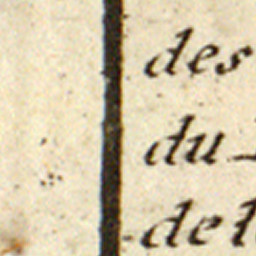 des
du
del